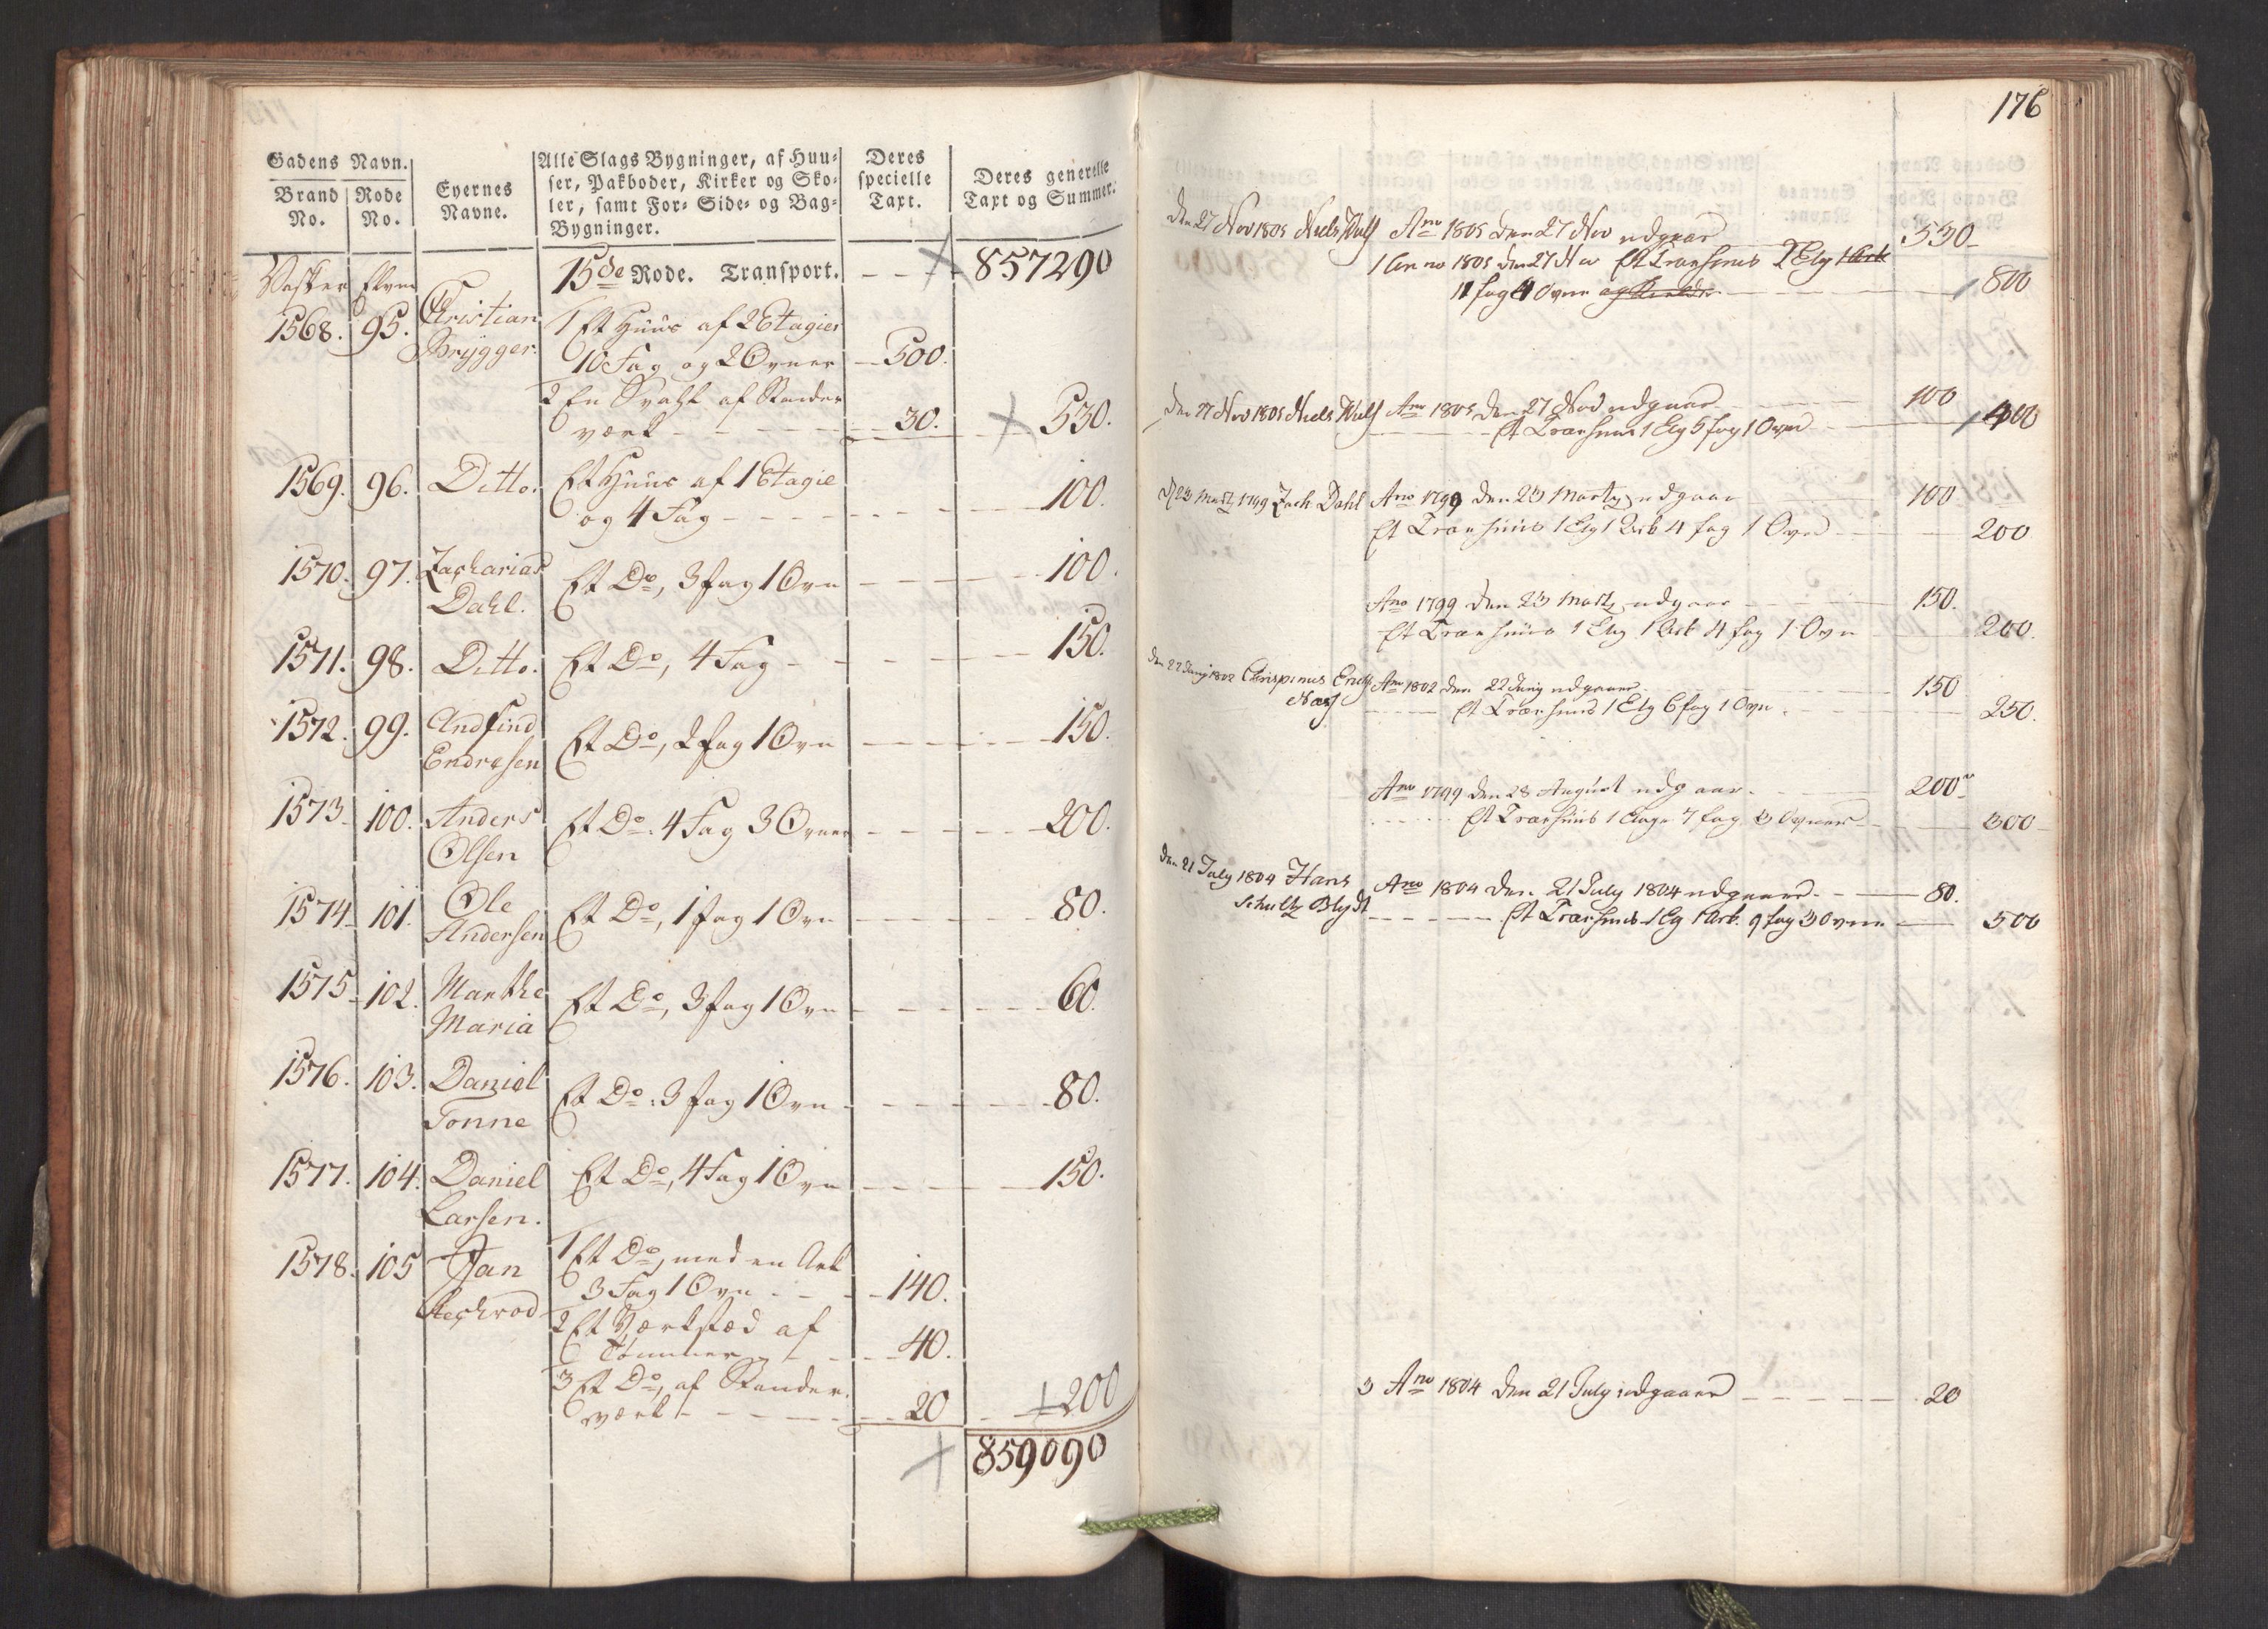 Gadens Navn.
Brand No.
Rode No.
Eyernes Navne.
Alle Slags Bygninger, af Huu-
ser, Pakboder, Kirker og Sko-
ler, samt For- Side- og Bag-
Bygninger.
Deres
specielle
Taxt.
Deres generelle
Taxt og Summer.
15de Rode. Transport. 857290
1568. 95. Christian 1 Et Huus af 2 Etagier
Brygger. 10 Fag og 2 Ovner 500.
2 En Svahl af Stander
værk 30. 530.
1569. 96. Ditto. Et Huus af 1 Etagie
og 4 Fag 100.
1570. 97. Zacharias Et Do, 3 fag 1 Ovn 100.
Dahl.
1571. 98. Ditto. Et Do, 4 Fag 150.
1572. 99. Andfind Et Do, 2 fag 1 Ovn 150.
Endresen
1573. 100. Anders Et Do. 4 Fag 3 Ovner 200.
Olsen
1574. 101. Ole Et Do, 1 fag 1 Ovn 80.
Andersen
1575. 102. Marthe Et Do, 3 fag 1 Ovn 60.
Maria
1576. 103. Daniel Et Do. 3 fag 1 Ovn 80.
Tonne
1577. 104. Daniel Et Do, 4 Fag 1 Ovn 150.
Larsen.
1578. 105 Jan 1 Et Do, med en Ark
3 Fag 1 Ovn 140.
2 Et Værksted af
Tømmer 40.
3 Et Do, af Stander
værk 20 200
859090
176
Den 27 Nov 1805 Niels Wulf Ano 1805 den 27 Nov udgaar 530
1 Anno 1805 den 27 Nov Et Træehuus 2 Etg 1 Ark
11 fag 4 Ovne 800
Den 27 Nov 1805 Niels Wulf Ano 1805 den 27 Nov udgaar 100
Et Træehuus 1 Etg 5 fag 1 Ovn 400
d 23 Martz 1799 Zach Dahl Ano 1799 den 23 Martz udgaar 100
Et Træehuus 1 Etg 1 Ark 4 fag 1 Ovn 200
Ano 1799 den 23 Martz udgaar 150.
Et Træehuus 1 Etg 1 Ark 4 fag 1 Ovn 200.
Den 22 Juny 1802 Chrispinus Ano 1802 den 22 Juny udgaar 150
Et Træehuus 1 Etg 6 fag 1 Ovn. 250.
Ano 1799 den 28 August udgaar. 200
Et Træehuus 1 Etage 7 fag 3 Ovner 300
Den 21 July 1804 Hans Ano 1804 den 21 July 1804 udgaar 80.
Schultz Blydt Et Træehuus 1 Etg 1 Ark. 9 fag 3 Ovne 500
3 Ano 1804 den 21 July udgaar 20